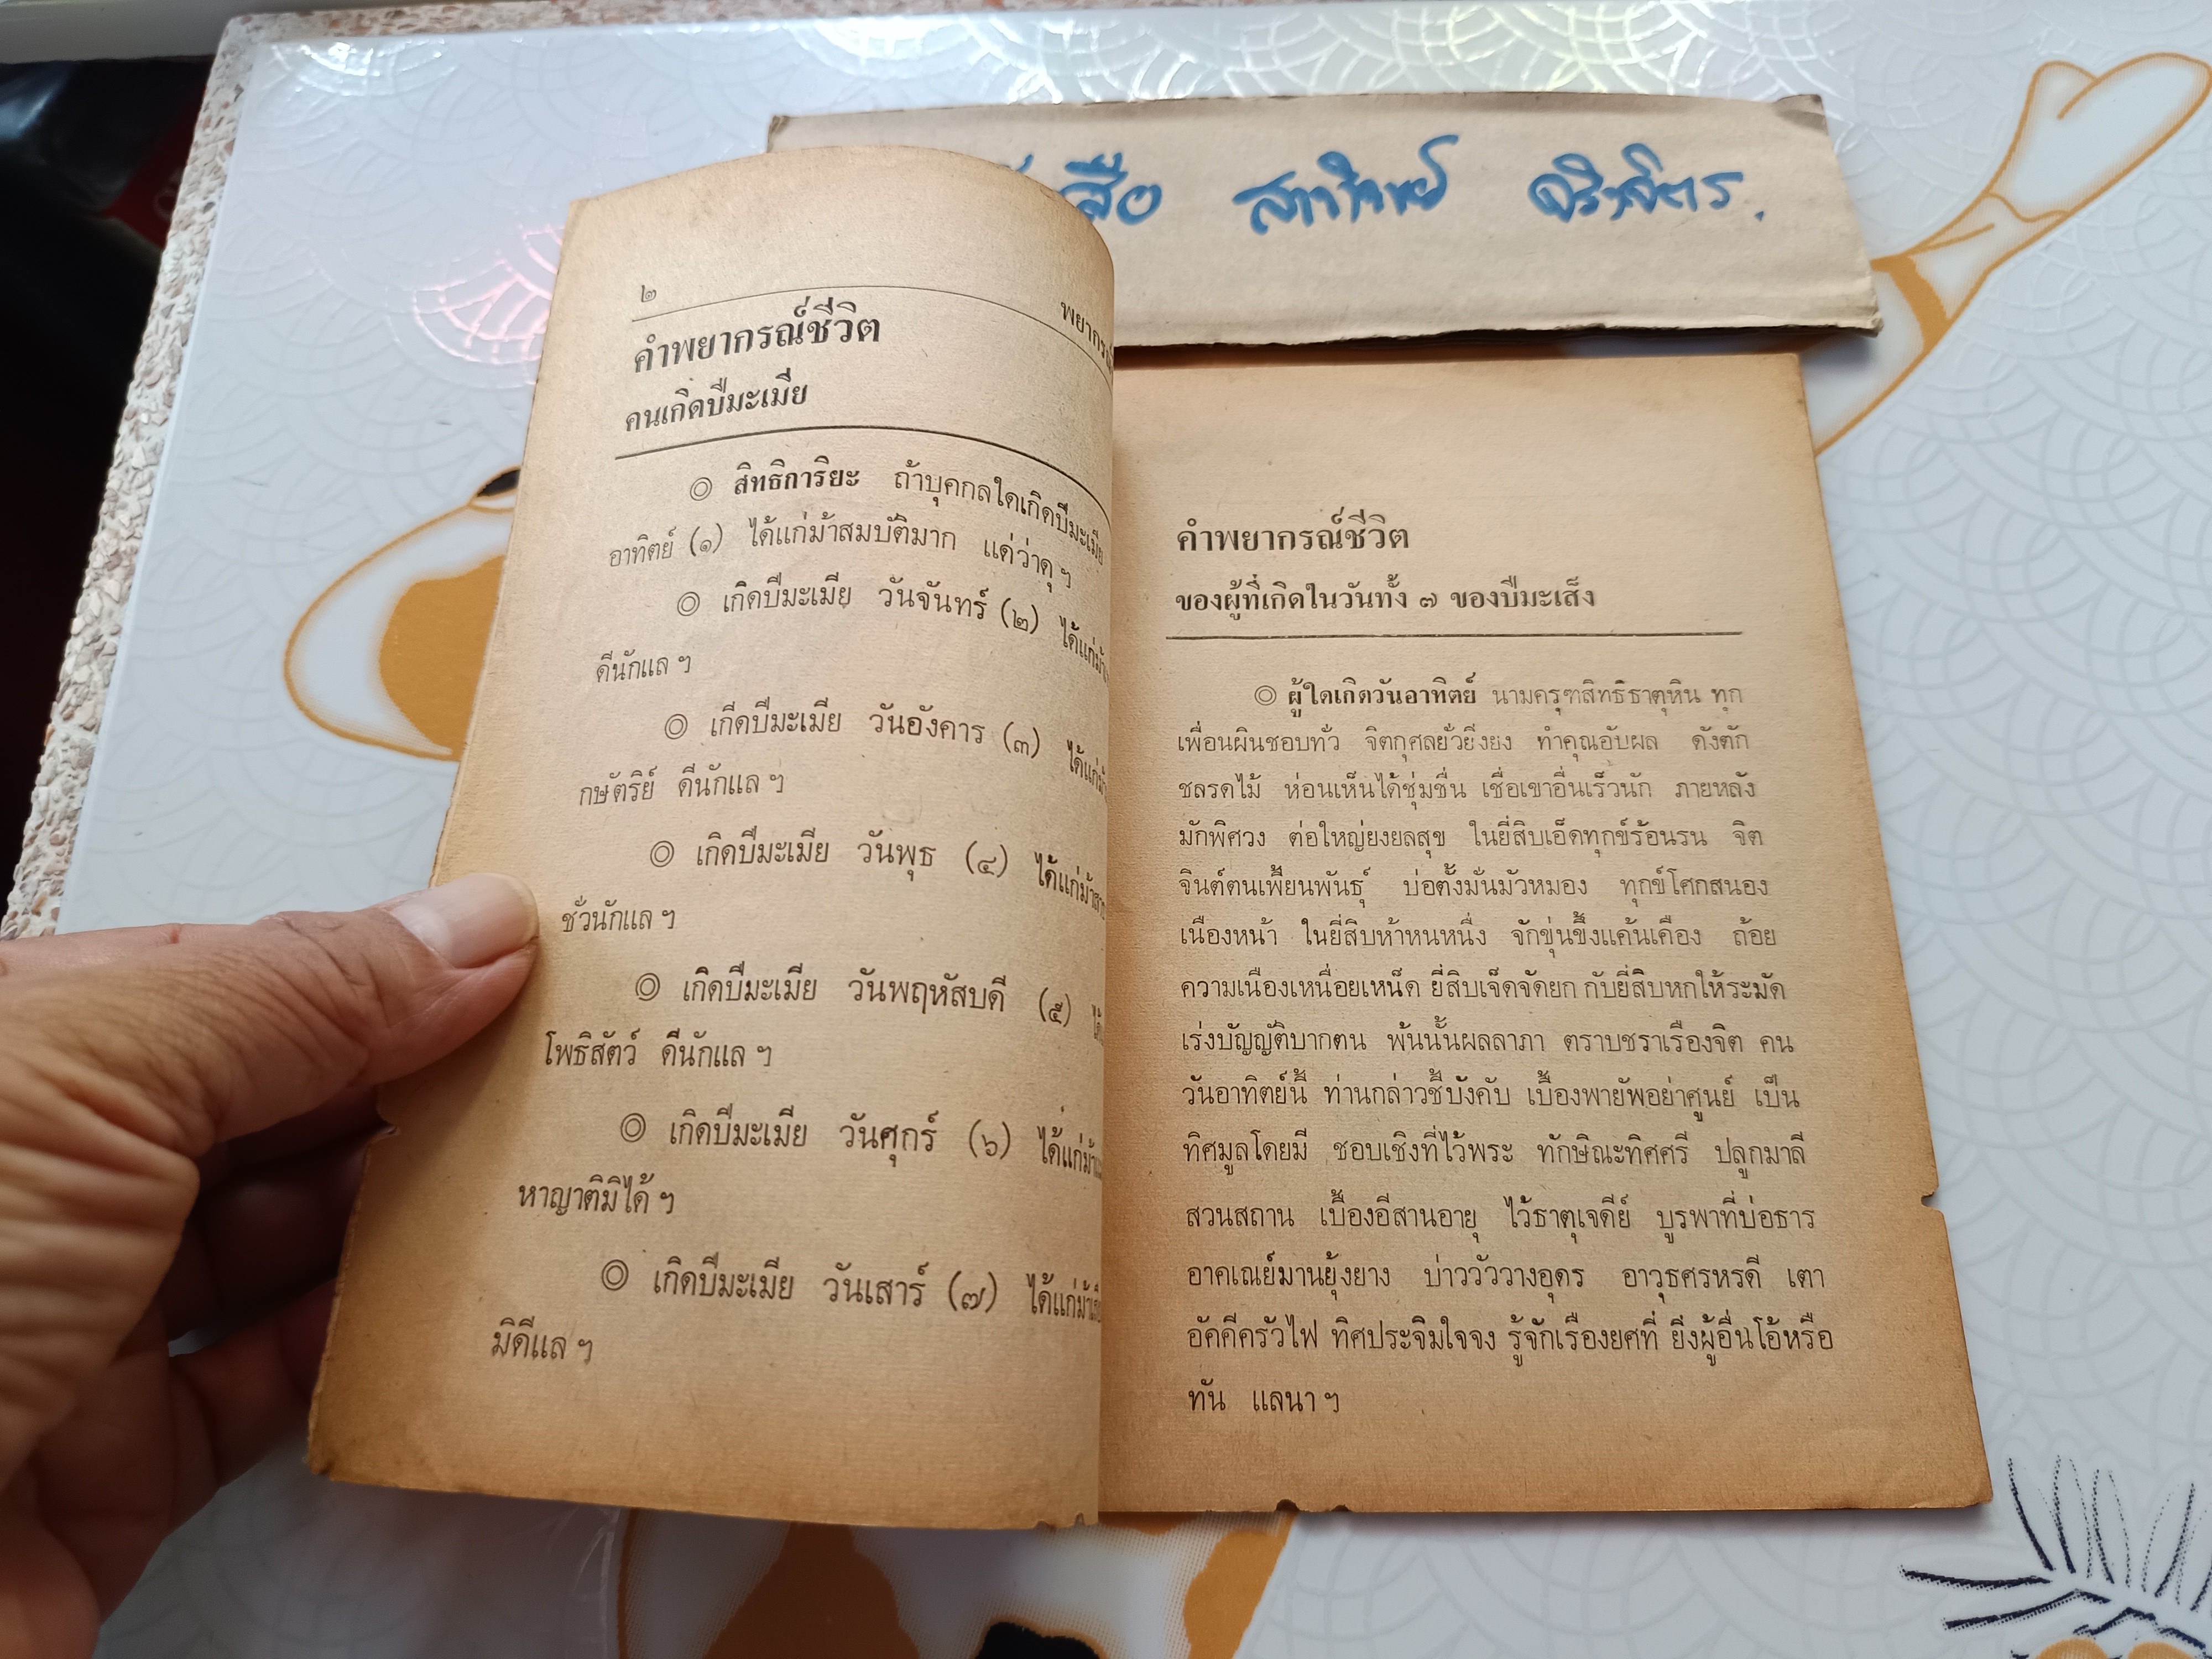 สาทิตย์
๒
พยากรณ์
คำพยากรณ์ชีวิต
คนเกิดปีมะเมีย
◎ สิทธิการิยะ ถ้าบุคกลใดเกิดปีมะเมีย
อาทิตย์ (๑) ได้แก่ม้าสมบัติมาก แด่ว่าดุ ฯ
◎ เกิดปีมะเมีย วันจันทร์ (๒) ได้แก่ม้า
ดีนักแล ฯ
◎ เกีดปีมะเมีย วันอังคาร (๓) ได้แก่ม้า
กษัตริย์ ดีนักแล ฯ
◎ เกิดปีมะเมีย วันพุธ (๔) ได้แก่ม้า
ชั่วนักแล ฯ
◎ เกิดปีมะเมีย วันพฤหัสบดี (๕)
โพธิสัตว์ ดีนักแล ฯ
◎ เกิดปีมะเมีย วันศุกร์ (๖) ได้แก่ม้า
หาญาติมิได้ ฯ
◎ เกิดปีมะเมีย วันเสาร์ (๗) ได้แก่ม้า
มิดีแล ฯ
คำพยากรณ์ชีวิต
ของผู้ที่เกิดในวันทั้ง ๗ ของปีมะเส็ง
◎ ผู้ใดเกิดวันอาทิตย์ นามครุฑสิทธิธาตุหิน ทุก
เพื่อนผินชอบทั่ว จิตกุศลยั่วยิ่งยง ทำคุณอับผล ดังตัก
ชลรดไม้ ห่อนเห็นได้ชุ่มชื่น เชื่อเขาอื่นเร็วนัก ภายหลัง
มักพิศวง ต่อใหญ่ยงยลสุข ในยี่สิบเอ็ดทุกข์ร้อนรน จิต
จินต์ตนเพี้ยนพันธุ์ บ่อตั้งมั่นมัวหมอง ทุกข์โศกสนอง
เนืองหน้า ในยี่สิบห้าหนหนึ่ง จักขุ่นขึ้งแค้นเคือง ถ้อย
ความเนืองเหนื่อยเหน็ด ยี่สิบเจ็ดจัดยก กับยี่สิบหกให้ระมัด
เร่งบัญญัติบากตน พ้นนั้นผลลาภา ตราบชราเรืองจิต คน
วันอาทิตย์นี้ ท่านกล่าวชี้บังคับ เบื้องพายัพอย่าศูนย์ เป็น
ทิศมูลโดยมี ชอบเชิงที่ไว้พระ ทักษิณะทิศศรี ปลูกมาลี
สวนสถาน เบื้องอีสานอายุ ไว้ธาตุเจดีย์ บูรพาที่บ่อธาร
อาคเณย์มานยุ้งยาง บ่าววัววางอุดร อาวุธศรหรดี เตา
อัคคีครัวไฟ ทิศประจิมใจจง รู้จักเรืองยศที่ ยิ่งผู้อื่นโอ้หรือ
ทัน แลนา ฯ